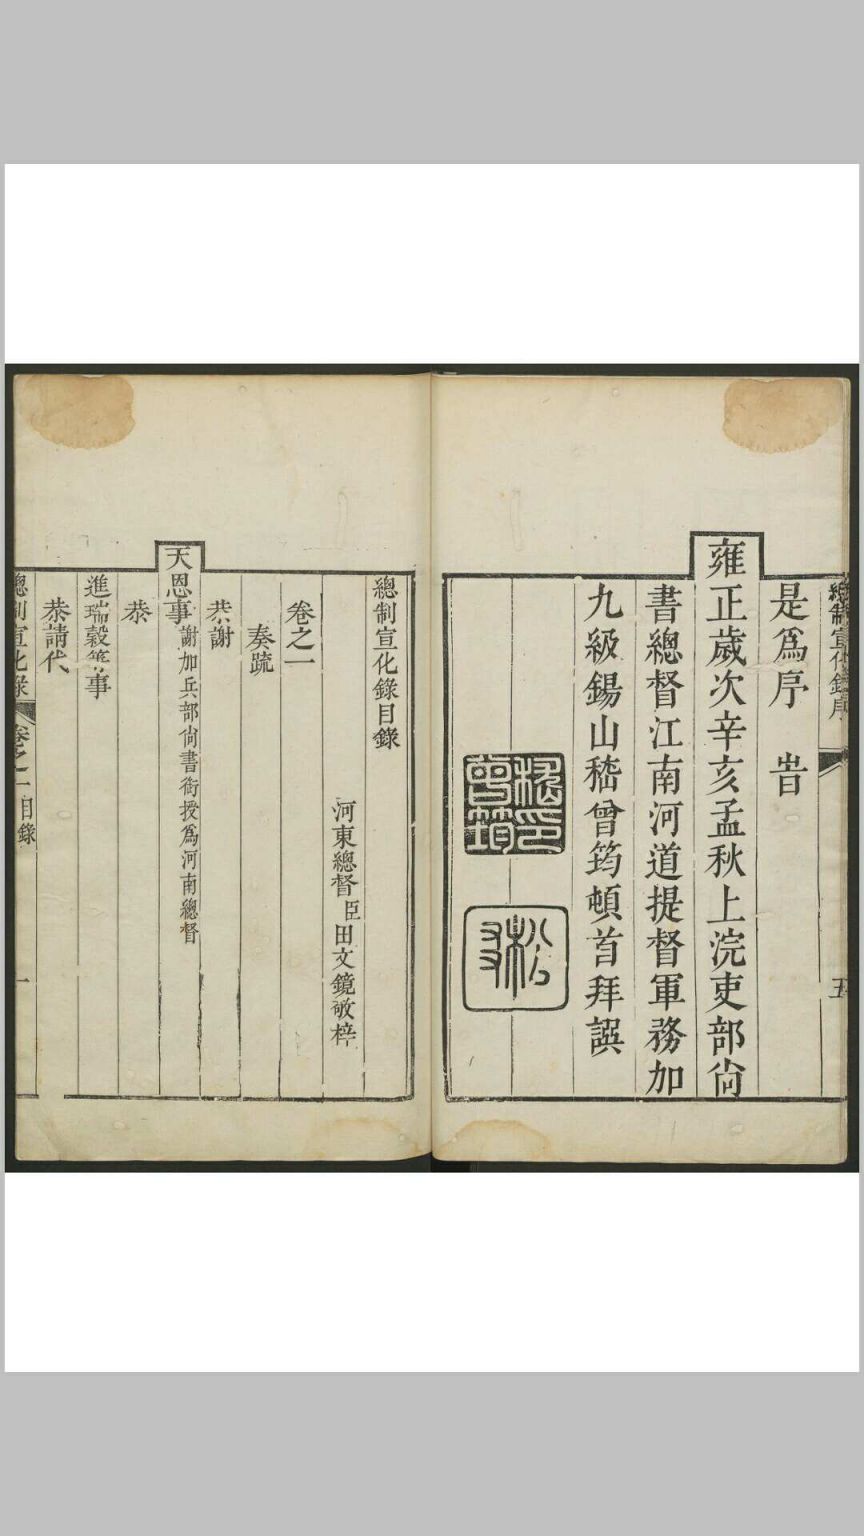 總制宣化錄序
五
是爲序　旹
雍正歲次辛亥孟秋上浣吏部尙
書總督江南河道提督軍務加
九級錫山嵇曾筠頓首拜譔
嵇曾筠印
松友
總制宣化錄目錄
河東總督臣田文鏡敬梓
卷之一
奏䟽
恭謝
天恩事謝加兵部尙書銜授爲河南總督
恭
進瑞穀等事
恭請代
總制宣化錄
卷之一目錄
一